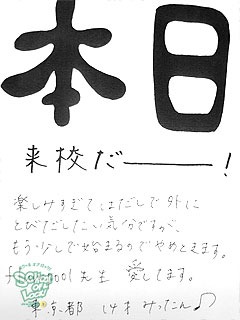 本日
来校だ———!
楽しみすぎてはだしで外に
とびだしたい気分ですが、
もう少しで始まるのでやめときます。
先生 愛してます。
東京都 14才 みったん♪